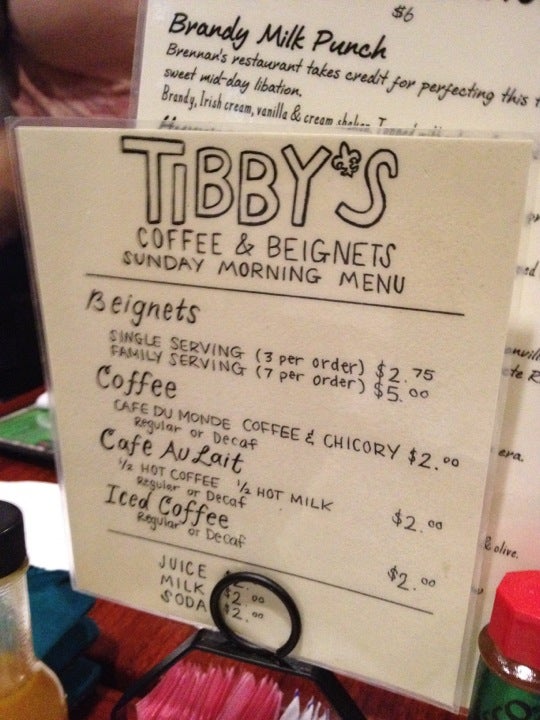 $6
Brandy Milk Punch
Brennan's restaurant takes credit for perfecting this
sweet mid-day libation.
Brandy, Irish cream, vanilla & cream shaken
TIBBY'S
COFFEE & BEIGNETS
SUNDAY MORNING MENU
Beignets
SINGLE SERVING (3 per order) $2.75
FAMILY SERVING (7 per order) $5.00
Coffee
CAFE DU MONDE COFFEE & CHICORY $2.00
Regular or Decaf
Café Au Lait
1/2 HOT COFFEE 1/2 HOT MILK $2.00
Regular or Decaf
Iced Coffee $2.00
Regular or Decaf
JUICE
MILK $2.00
SODA $2.00
era.
& olive.